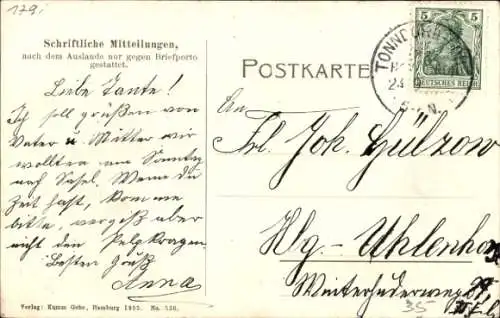 179.
Schriftliche Mitteilungen,
nach dem Auslande nur gegen Briefporto
gestattet.
Liebe Tante!
Ich soll grüßen von
Vater u. Mutter wir
wollten am Sonntag
nach Sasel. Wenn du
Zeit hast, komme
bitte, vergiß aber
nicht den Pelzkragen.
Besten Gruß
Anna
Verlag: Kumm Gebr., Hamburg 1905. No.
POSTKARTE
5 5
DEUTSCHES REICH
TONNDORF
24
An
Frl. Joh. Gülzow
Hbg.-Uhlenhorst
Winterhuderweg
35